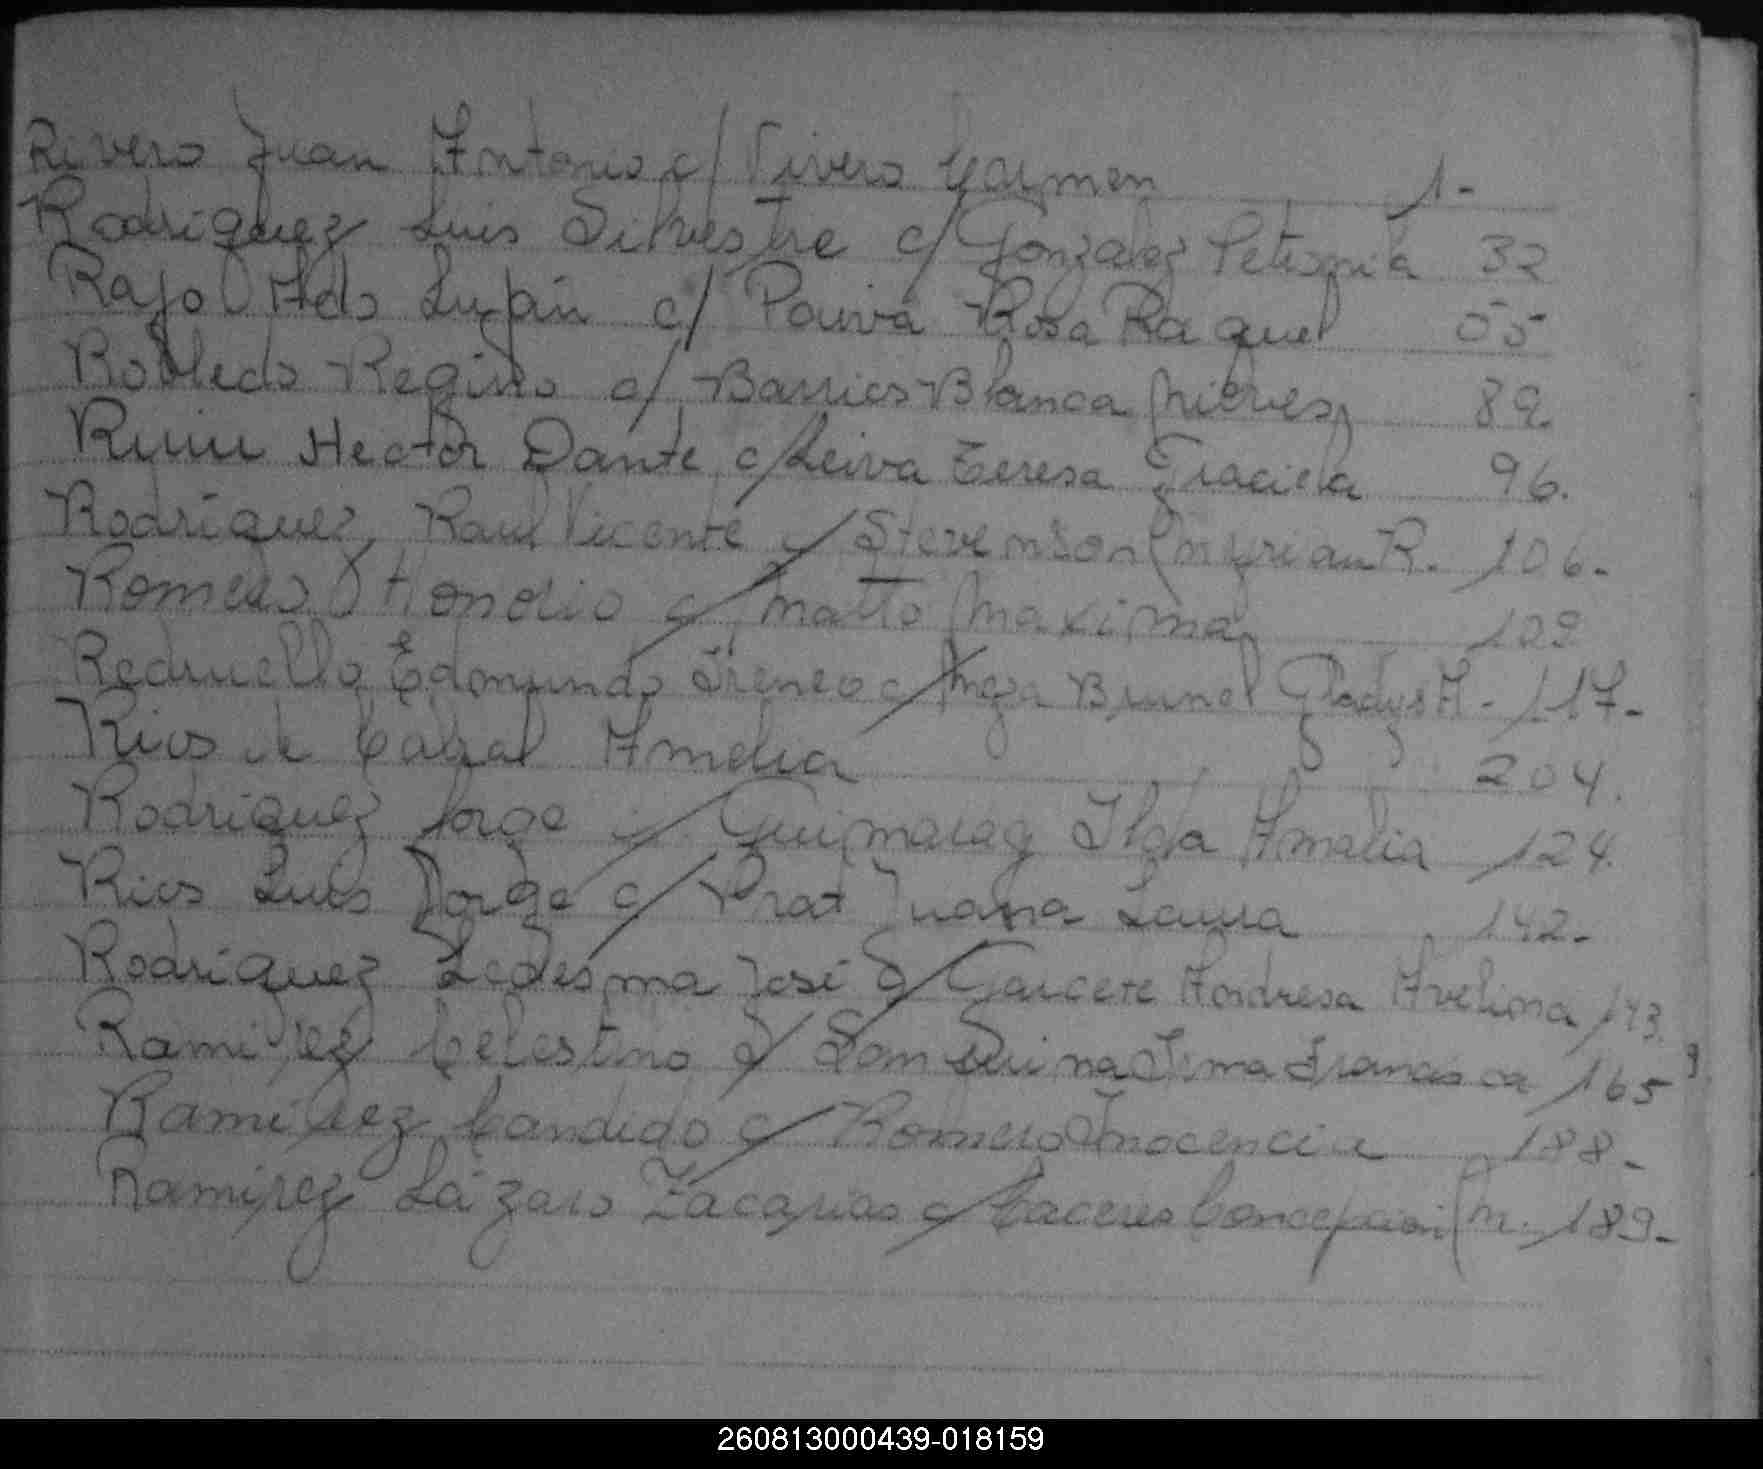 Rivero Juan Antonio c/ Vivero Carmen 1-
Rodriguez Luis Silvestre c/ Gonzalez Petronila 32
Rajo Aldo Luján c/ Paiva Rosa Raquel 55
Robledo Regino c/ Barrios Blanca Nieves 89.
Hector Dante c/ Leiva Teresa Graciela 96.
Rodriguez Raul Vicente c/ Stevenson Myrian R. 106.
Romero Honorio c/ Matto Maxima 109
Redruello Edmundo Ireneo c/ Meza Brunel Gladys A. 117-
Rios de Cabral Amelia 204.
Rodriguez Jorge c/ Guimaraez Ilda Amalia 124.
Rios Luis Jorge c/ Prat Juana Laura 142-
Rodriguez Ledesma José c/ Garcete Andresa Avelina 143.
Ramirez Celestino c/ Francisca 165
Ramirez Candido c/ Romero Inocencia 188-
Ramirez Lázaro Zacarias c/ Caceres Concepcion M. 189-
260813000439-018159